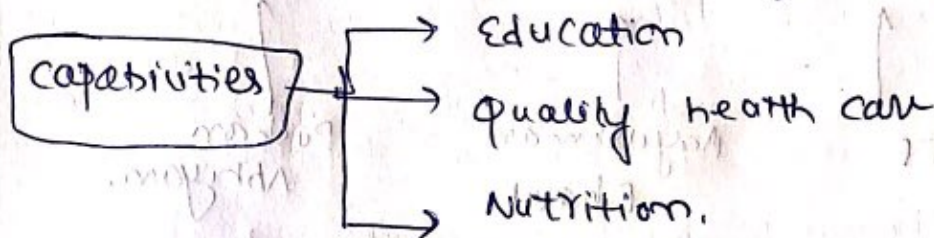 Capabilities
Education
Quality health care
Nutrition.